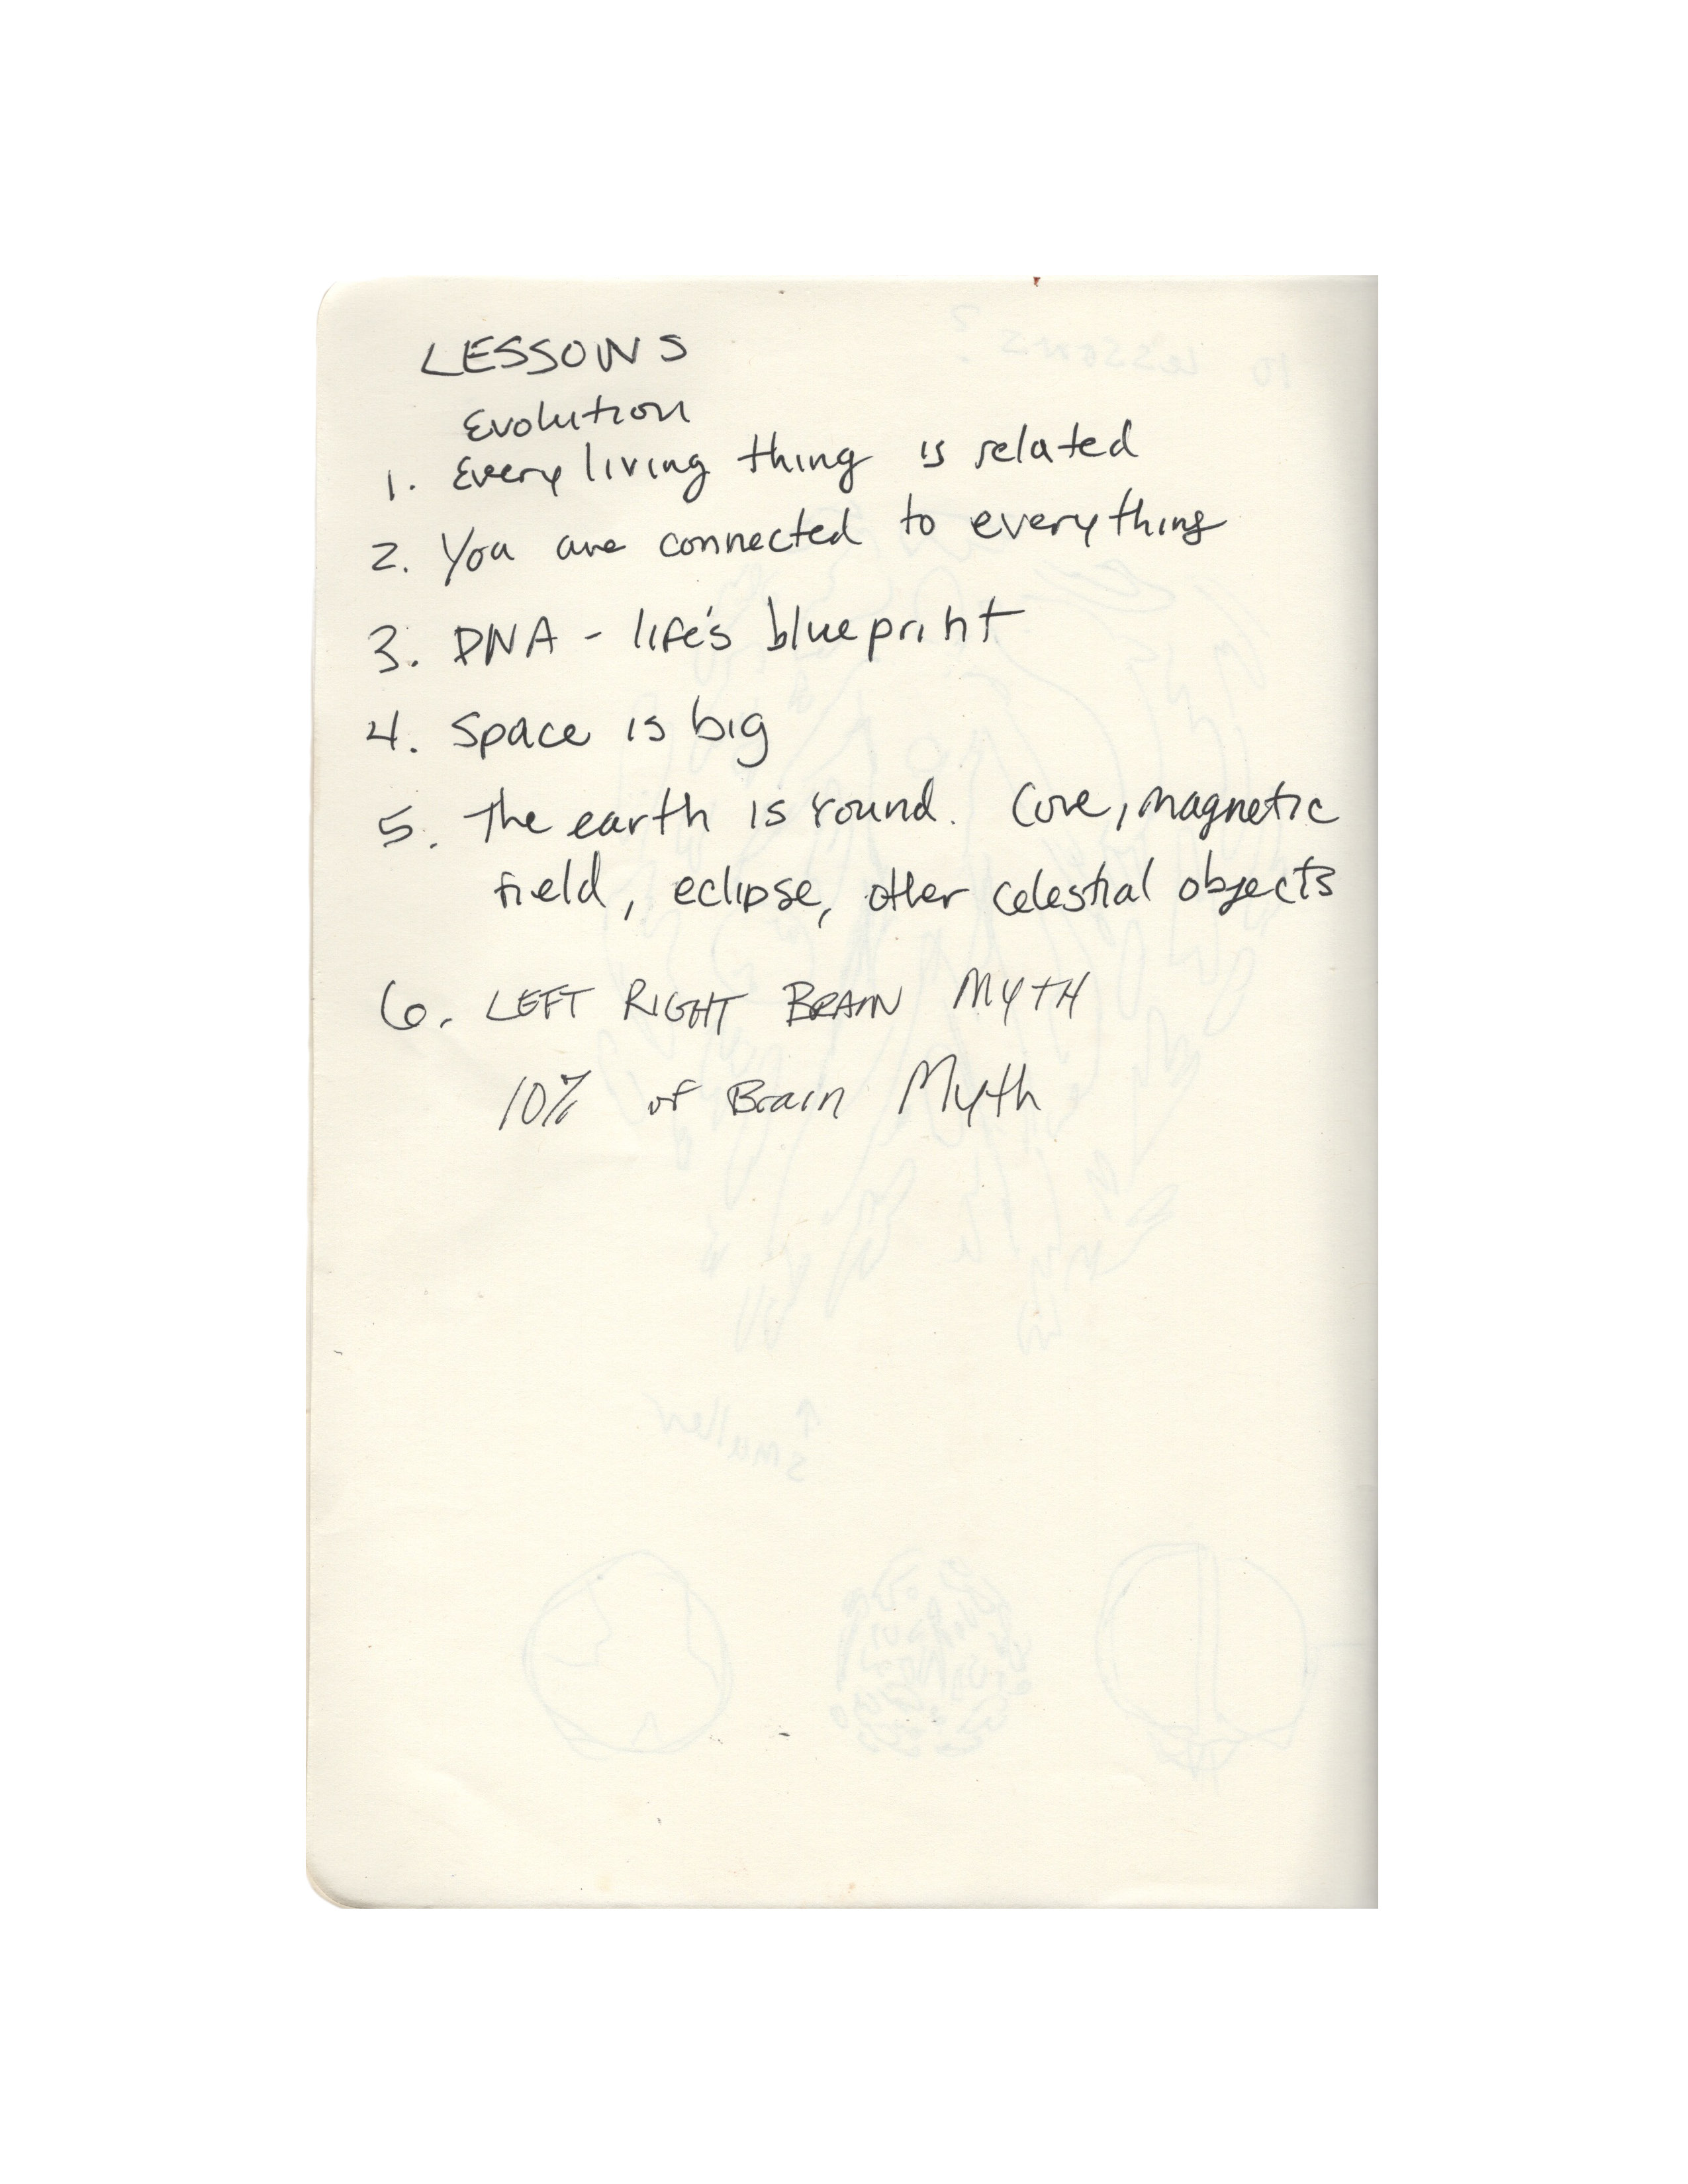 LESSONS
Evolution
1. Every living thing is related
2. You are connected to everything
3. DNA - life's blueprint
4. Space is big
5. The earth is round. Core, magnetic
field, eclipse, other celestial objects
6. LEFT RIGHT BRAIN MYTH
10% of Brain Myth
10 Lessons?
↑
smaller